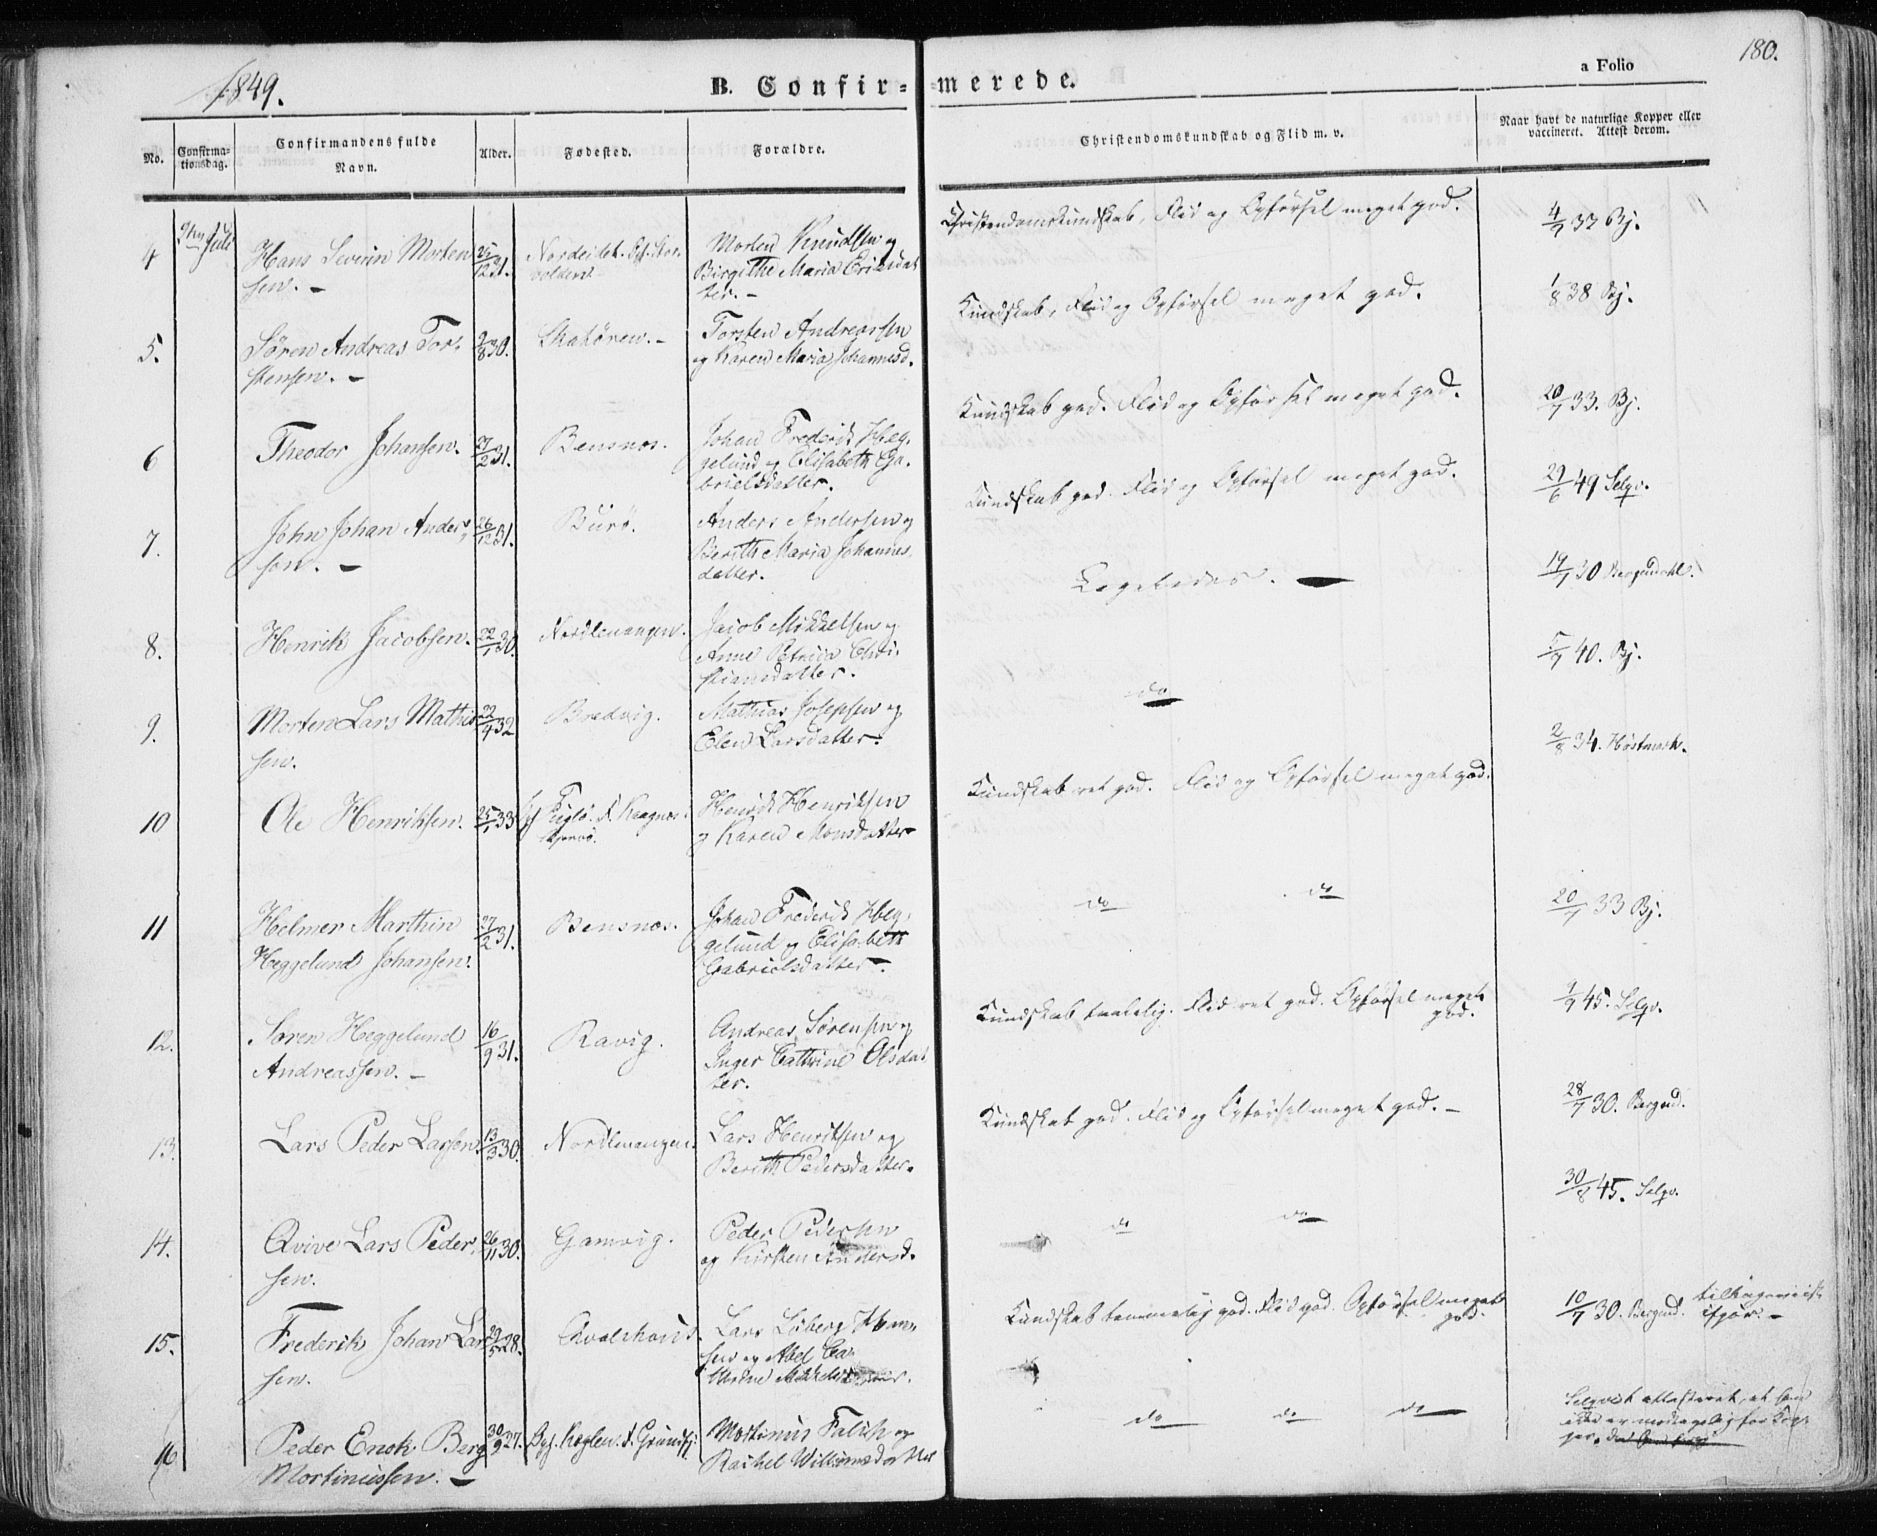 1849.
B. Confir-
merede.
a Folio
180.
No.
Confirma-
tionsdag.
Confirmandens fulde
Navn.
Alder.
Fødested.
Forældre.
Christendomskundskab og Flid m. v.
Naar havt de naturlige Kopper eller
vaccineret. Attest derom.
4 Juli Hans Severin Morten
sen. 12 31. Nordeidet.
Morten Knudsen og
Birgithe Maria Eriksdat
ter.
Christendomskundskab, Flid og Opførsel meget god.
4/7 32 Bj.
5. Søren Andreas Tor-
stensen. 2/8 30. Skatøren.
Torsten Andreassen
og Karen Maria Johannesd.
Kundskab, Flid og Opførsel meget god.
1/8 38 Bj.
6 Theodor Johansen. 27/2 31. Bensnæs.
Johan Frederik Heg-
gelund og Elisabeth Ga-
brielsdatter.
Kundskab god. Flid og Opførsel meget god.
20/7 33. Bj.
7. John Johan Anders
sen. 26/12 31. Burø.
Anders Andersen og
Berith Maria Johannes
datter.
Kundskab god. Flid og Opførsel meget god.
29/6 49 Selqv.
8. Henrik Jacobsen. 22/1 30. Nordlenangen.
Jacob Mikkelsen og
Anne Petrica Chri-
stiansdatter.
Ligeledes.
19/7 30 Bergendahl.
9. Morten Lars Mathis
sen. 22/4 32 Bredvig.
Mathias Josepsen og
Elen Larsdatter.
do
5/7 40. Bj.
10 Ole Henriksen. 25/1 33
Henrik Henriksen
og Karen Monsdatter
Kundskab ret god. Flid og Opførsel meget god.
2/8 34. Høstmark.
11 Helmer Marthin
Heggelund Johansen. 27/2 31. Bensnæs.
Johan Frederik Heg-
gelund og Elisabeth
Gabrielsdatter.
do do
20/7 33 Bj.
12. Søren Heggelund
Andreassen. 16/9 31. Ravig.
Andreas Sørensen og
Inger Cathrine Olsdat
ter.
Kundskab taalelig. Flid ret god. Opførsel meget
god.
1/7 45. Selqv.
13. Lars Peder Larsen. 13/3 30. Nordlenangen.
Lars Henriksen og
Berith Pedersdatter.
Kundskab god. Flid og Opførsel meget god.
28/7 30. Bergend.
14. Qvive Lars Peder
sen. 26/11 30. Gamvig.
Peder Pedersen
og Kirsten Andersd.
do do
30/8 45. Selqv.
15. Frederik Johan Lar
sen. 28.
Lars Løberg Han-
sen og Abel Ca-
thrine Mikkelsdatter.
Kundskab temmelig god. Flid god. Opførsel meget
god.
10/7 30. Bergend.
16 Peder Enok Berg
Mortinussen. 30/9 27.
Mortinus Falch og
Rachel Willumsdatter
do do do
Selqvist attesteret, at han
ikke er modtagelig for Kop-
per.